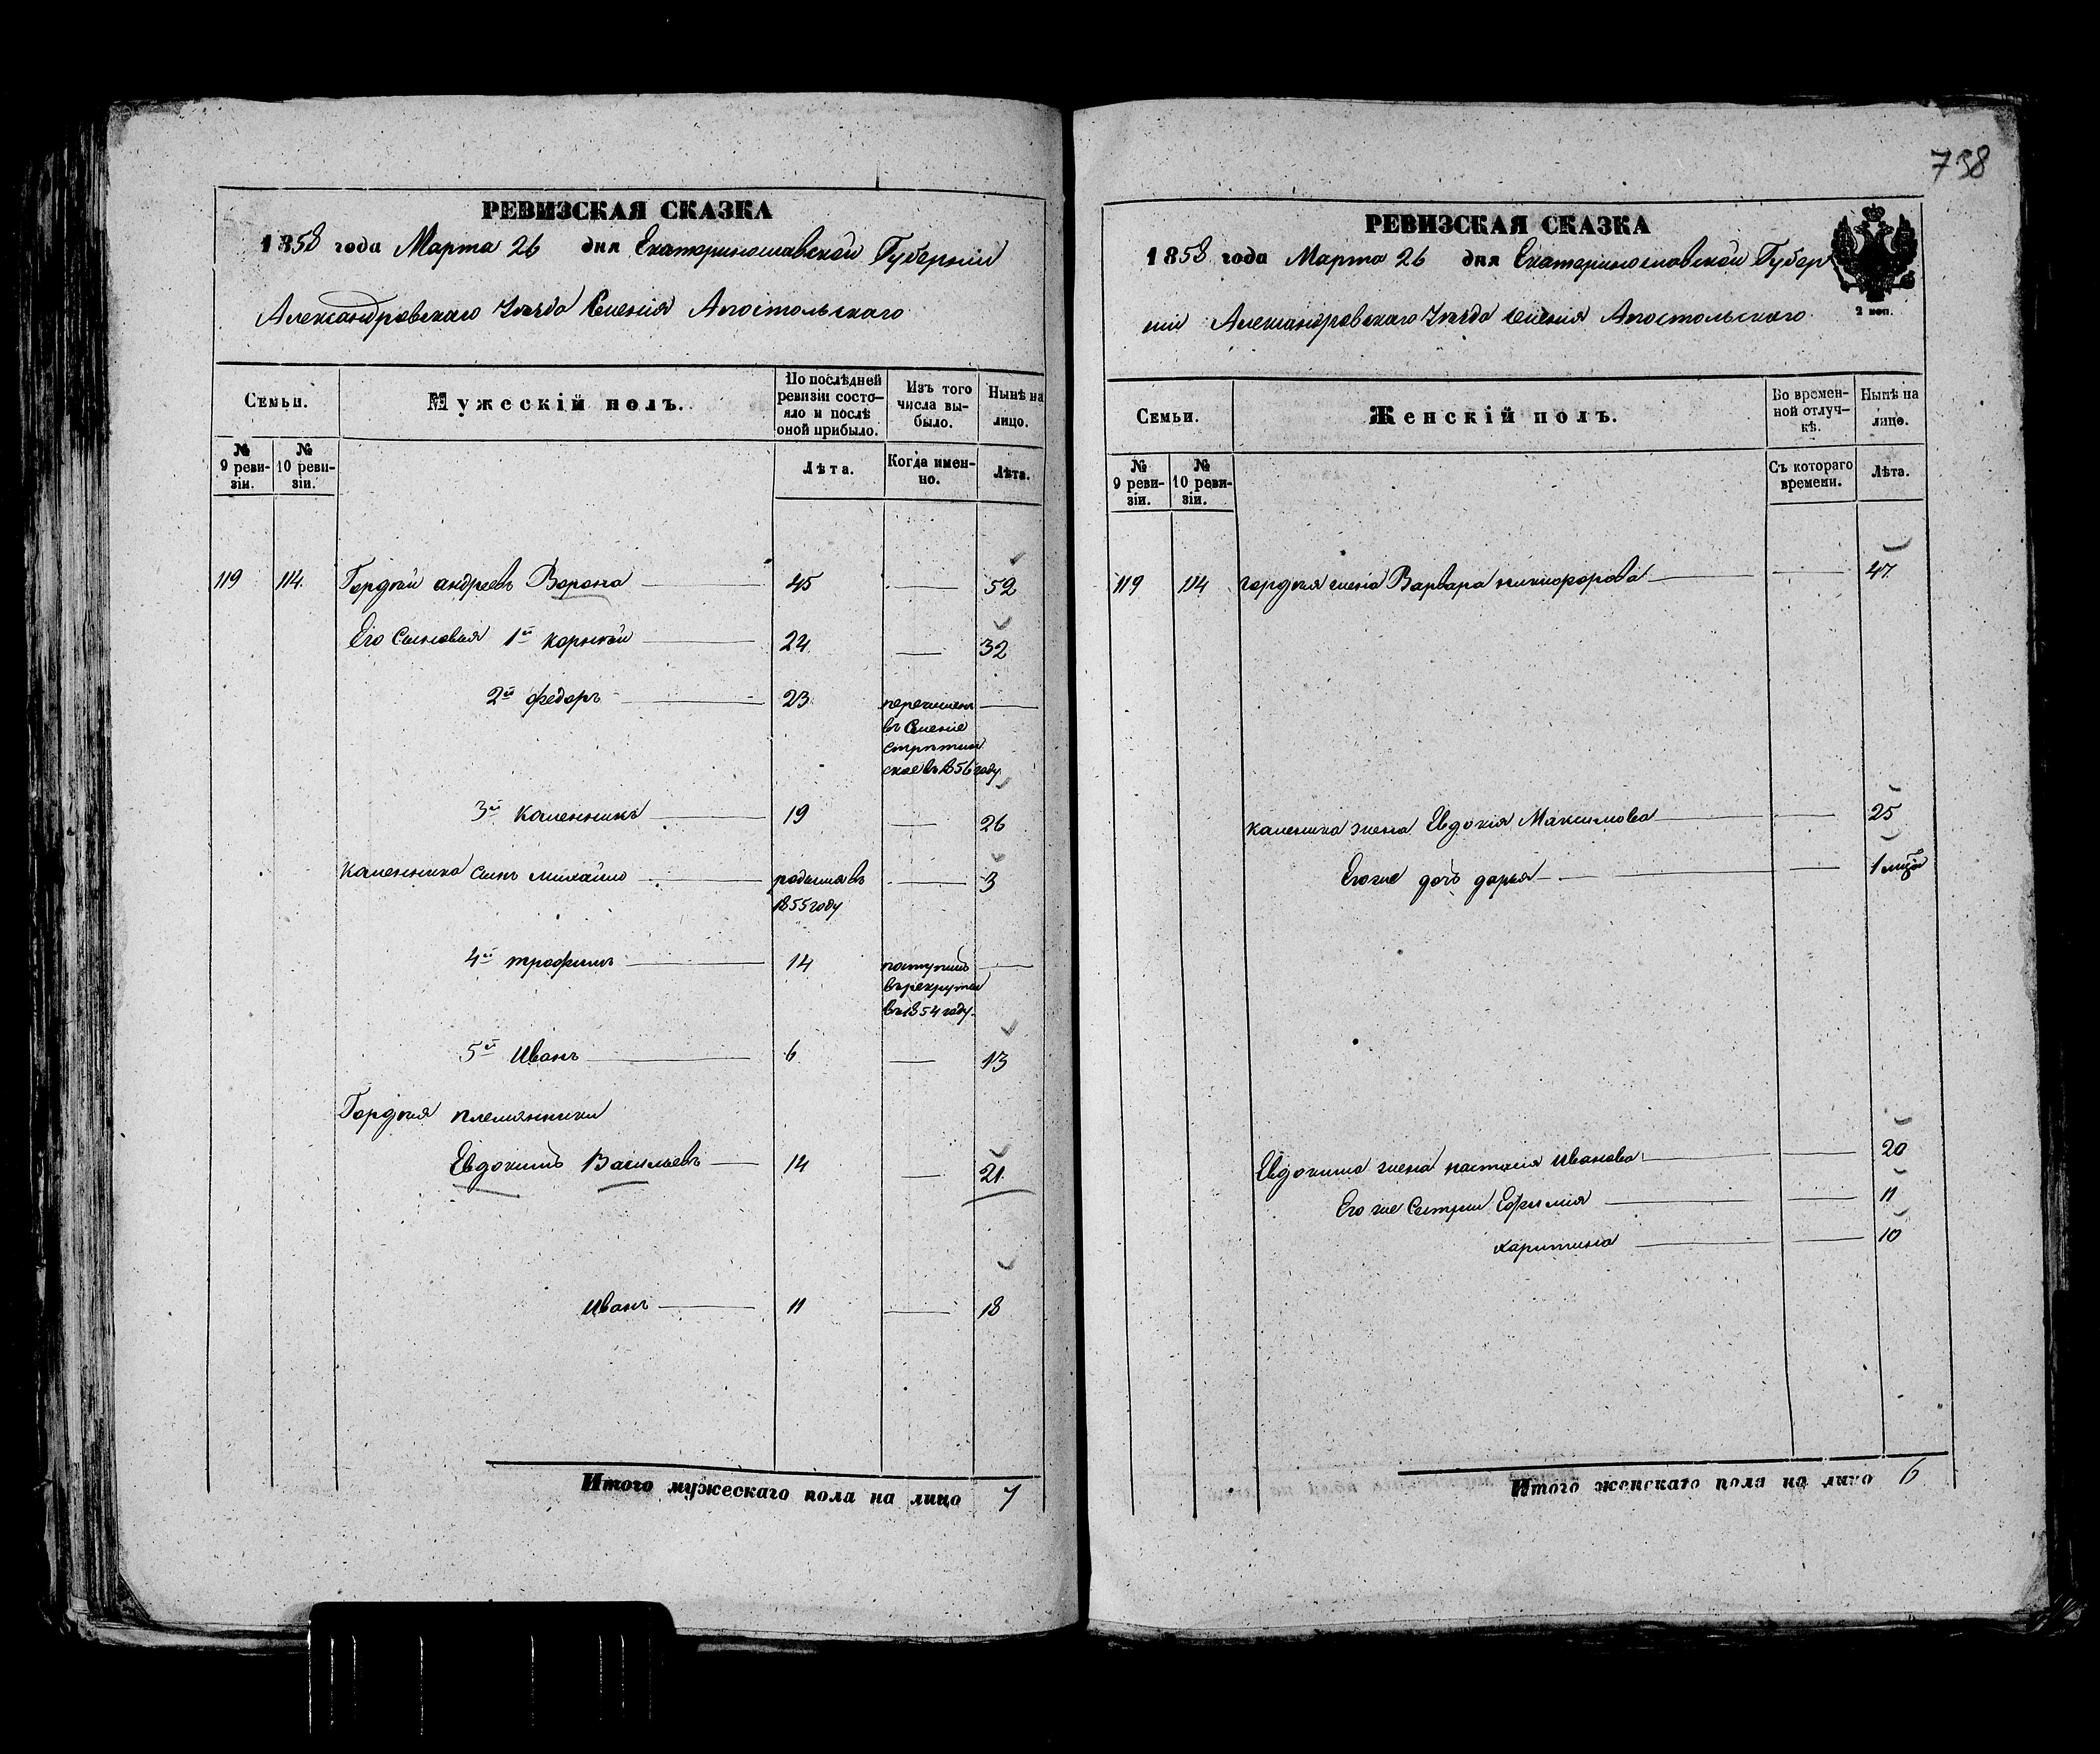 738
РЕВИЗСКАЯ СКАЗКА
1858 года Марта 26 дня Екатеринославской Губерніи
Александровского Уезда Селенія Апостольского
Семьи.
Мужескій полъ.
По послѣдней ревизіи состо-
яло и послѣ
оной прибыло.
Изъ того
числа вы-
было.
Нынѣ на
лицо.
№
9 реви-
зіи.
№
10 реви-
зіи.
Лѣта.
Когда имен-
но.
Лѣта.
119 114 Гордѣй андреевъ Ворона 45 52
Его Сыновья 1й корнѣй 24 32
2й федоръ 23 перечислен
въ Селеніе
ское въ 1856 году
3й Каленникъ 19 26
Каленника Сынъ Михайло родился въ 3
1855 году
4й трофимъ 14 поступилъ
въ рекруты
въ 1854 году.
5й Иванъ 6 13
Гордѣя племянники
Евдокимъ Васильевъ 14 21
Иванъ 11 18
Итого мужескаго пола на лицо 7
РЕВИЗСКАЯ СКАЗКА
1858 года Марта 26 дня Екатеринославской Губер
ніи Александровского Уезда Селенія Апостольского
2 коп.
Семьи.
Женскій полъ.
Во времен-
ной отлуч-
кѣ.
Нынѣ на
лицо.
№
9 реви-
зіи.
№
10 реви-
зіи.
Съ котораго
времени.
Лѣта.
119 114 гордѣя жена Варвара никифорова 47
каленика жена Евдокія Максимова 25
Его же дочь дарья 1
Евдокима жена настасія Иванова 20
Его же Сестры Ефимія 11
харитина 10
Итого женскаго пола на лицо 6